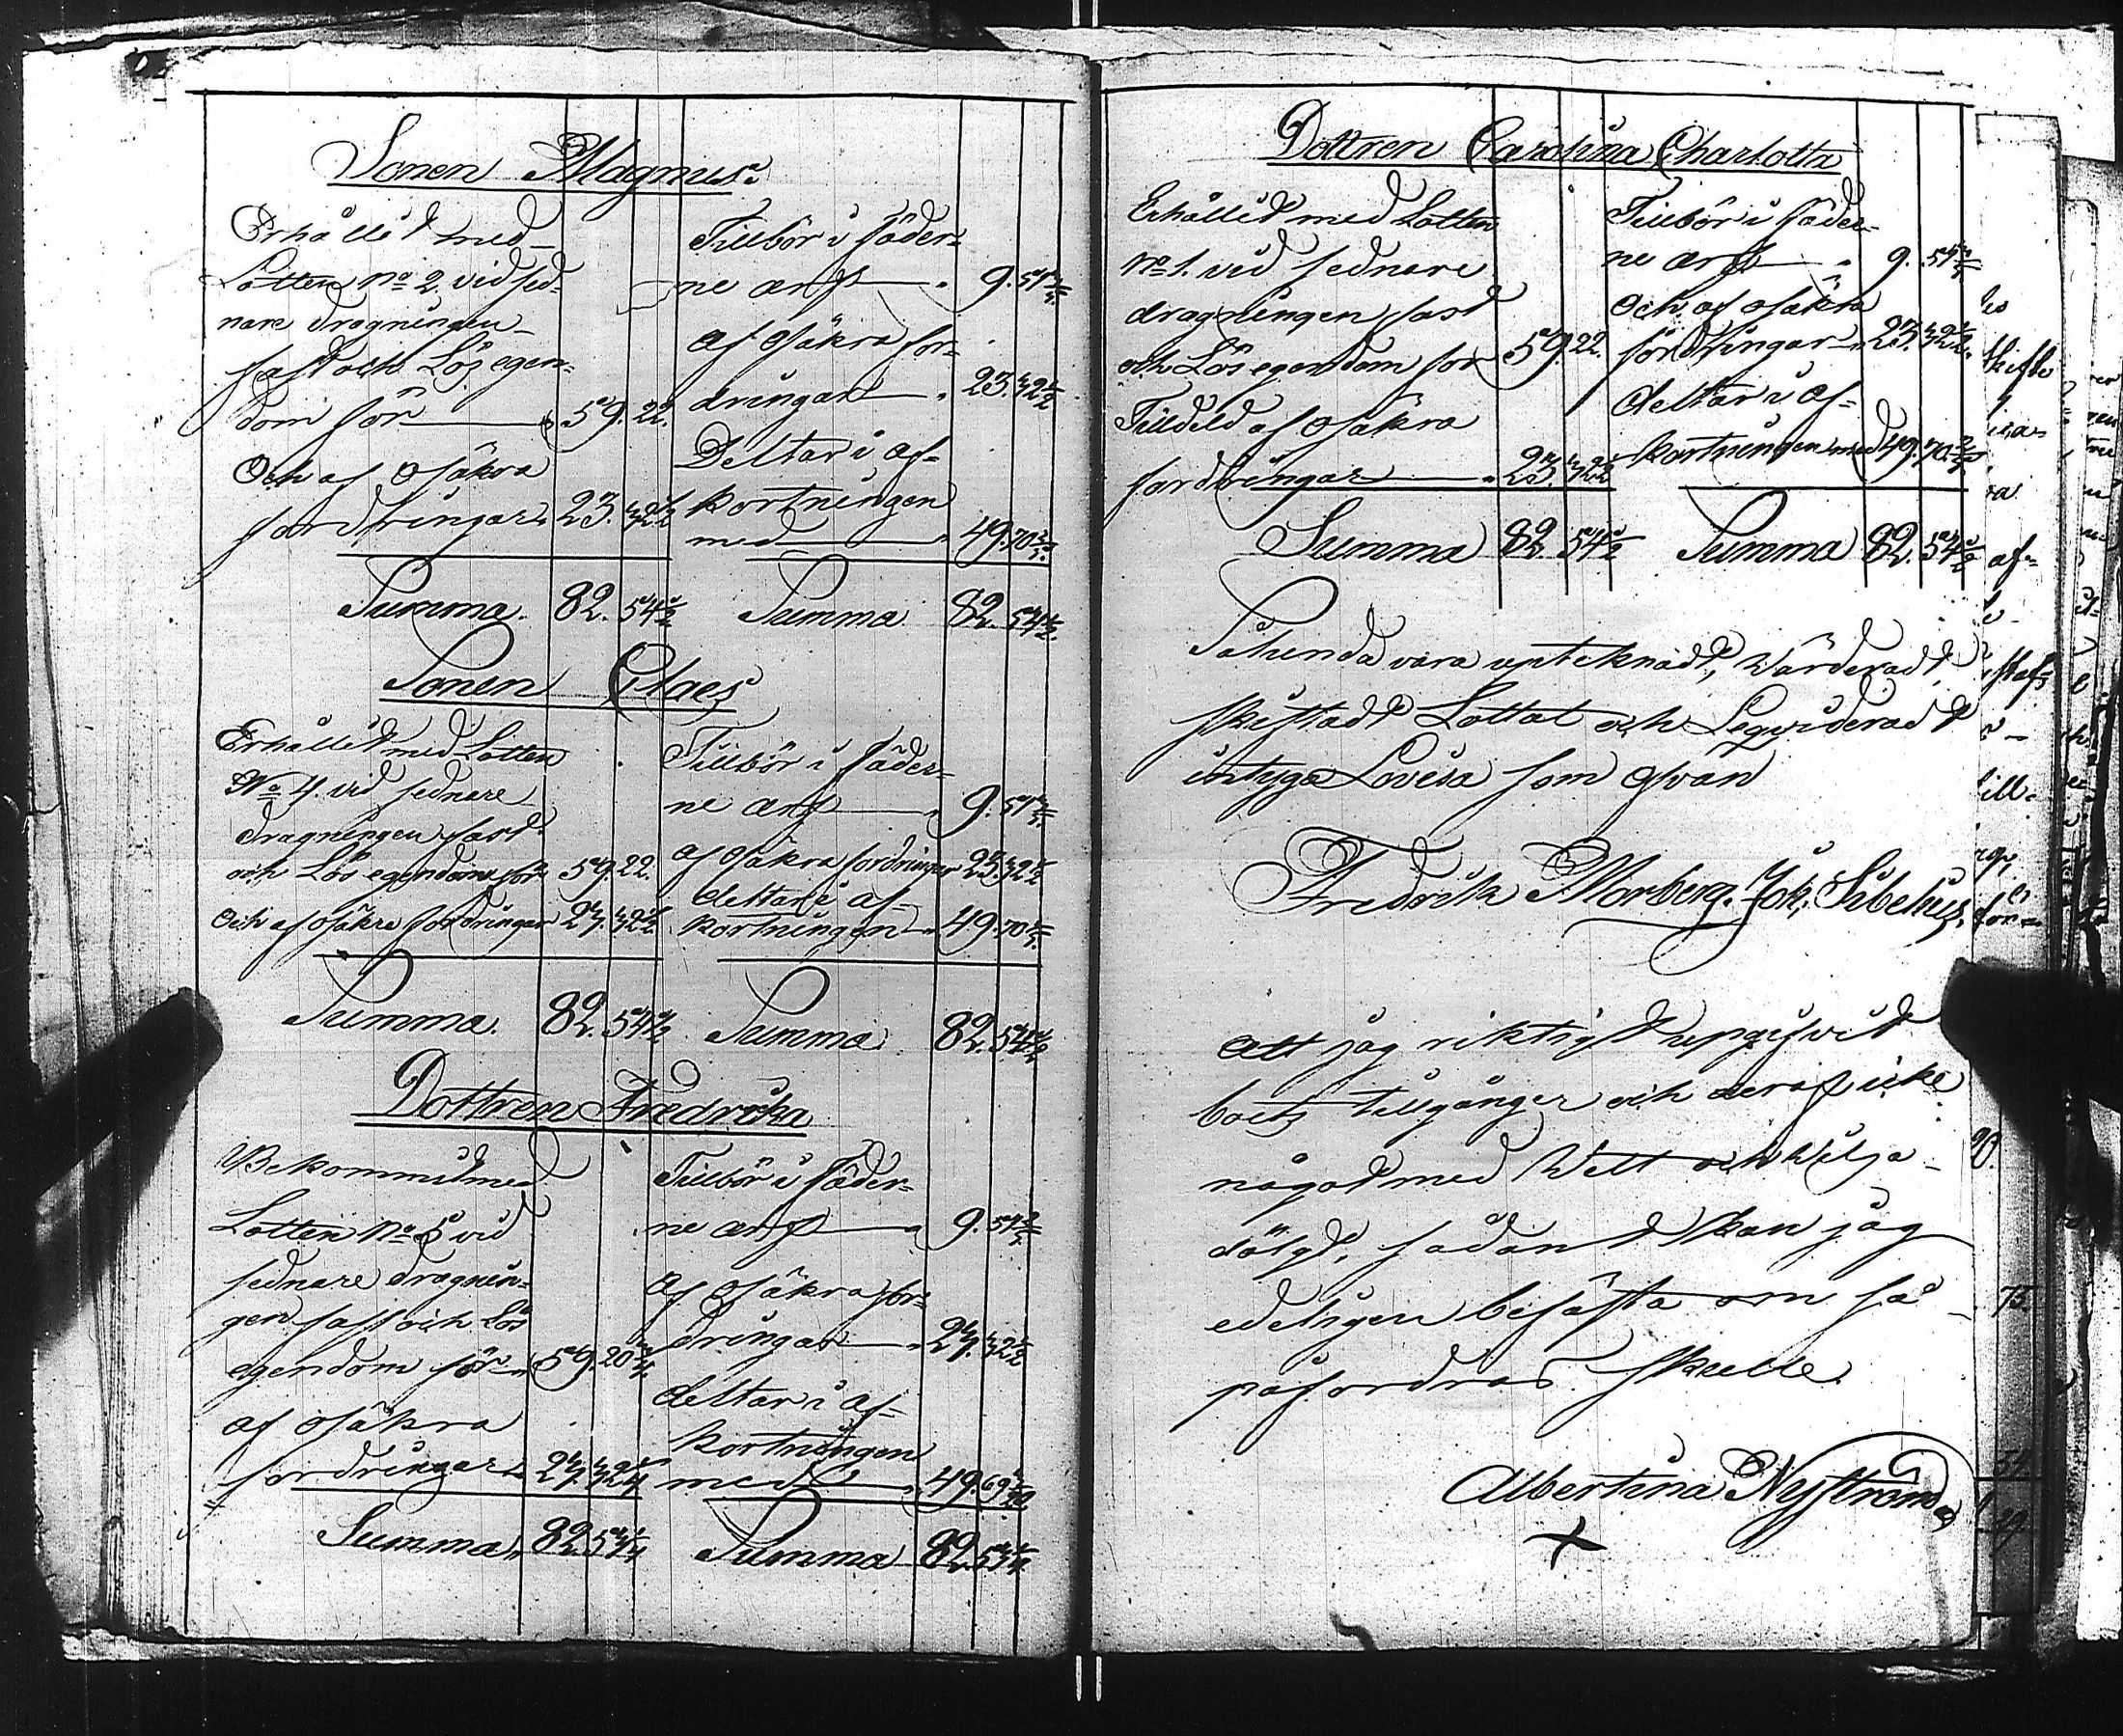 Sonen Magnus.
Erhållit med
Lotten No 2 vid sed-
nare dragningen
fast och Lös egen-
dom för 59. 22.
Och af osäkra
fordringar 23. 32 1/2
Summa. 82. 54 1/2
Tillbör i fäder-
ne arf 9. 51
af osäkra for-
dringar 23. 32 1/2
Deltar i af-
kortningen
med 49. 70
Summa 82. 54 1/2
Sonen Claes
Erhållit med Lotten
No 4. vid sednare
dragningen fast
och Lös egendom för 59. 22.
Och af osäkra fordringar 23. 32 1/2
Summa. 82. 54 1/2
Tillbör i fäder-
ne arf 9. 51
af osäkra fordringar 23. 32 1/2
deltar i af-
kortningen 49. 70
Summa 82. 54 1/2
Dottren Fredrika
Bekommit med
Lotten No 5 vid
sednare dragnin-
gen fast och Lös
egendom för 59. 20
af osäkra
fordringar
Summa 82.
Tillbör i fäder-
ne arf 9. 51
Af osäkra for-
dringar
deltar i af-
kortningen
med 49. 69
Summa 82.
Dottren Carolina Charlotta
Erhållit med Lotten
No 1. vid sednare
dragningen fast
och Lös egendom för 59. 22.
Tilldeld af osäkra
fordringar 23. 32 1/2
Summa 82. 54 1/2
Tillbör i fäder-
ne arf 9. 51
Och af osäkra
fordringar 23. 32 1/2
deltar i af-
kortningen med 49. 70
Summa 82. 54 1/2
Sålunda vara upteknadt, Värderadt,
skiftadt Lottat och Liqvideradt
intyga Lovisa som ofvan
Fredrik Morberg. Joh. Sibelius.
Att jag riktigt uppgifvit
boets tillgångar och deraf icke
något med Vett och Vilja
dölgt, sådant kan jag
edeligen befästa om så
påfordras skulle.
Albertina Nyström